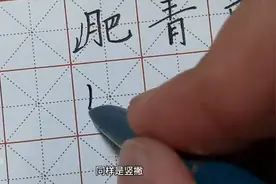 肥青
同样是竖撇